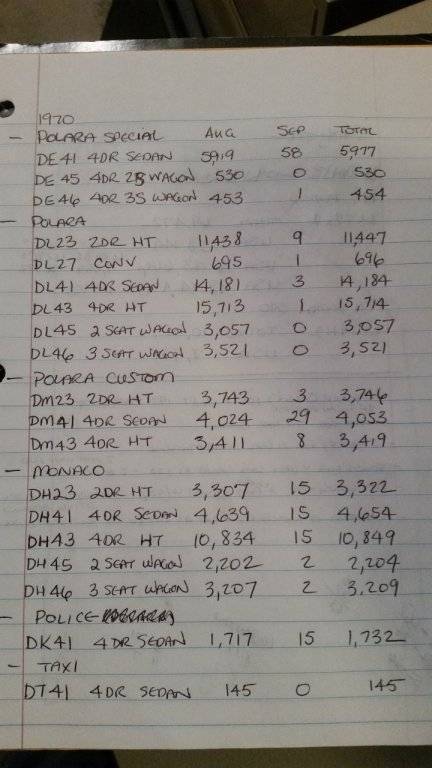 1970
- POLARA SPECIAL AUG SEP TOTAL
DE41 4DR SEDAN 5,919 58 5,977
DE45 4DR 2S WAGON 530 0 530
DE46 4DR 3S WAGON 453 1 454
- POLARA
DL23 2DR HT 11,438 9 11,447
DL27 CONV 695 1 696
DL41 4DR SEDAN 14,181 3 14,184
DL43 4DR HT 15,713 1 15,714
DL45 2 SEAT WAGON 3,057 0 3,057
DL46 3 SEAT WAGON 3,521 0 3,521
- POLARA CUSTOM
DM23 2DR HT 3,743 3 3,746
DM41 4DR SEDAN 4,024 29 4,053
DM43 4DR HT 3,411 8 3,419
- MONACO
DH23 2DR HT 3,307 15 3,322
DH41 4DR SEDAN 4,639 15 4,654
DH43 4DR HT 10,834 15 10,849
DH45 2 SEAT WAGON 2,202 2 2,204
DH46 3 SEAT WAGON 3,207 2 3,209
- POLICE
DK41 4DR SEDAN 1,717 15 1,732
- TAXI
DT41 4DR SEDAN 145 0 145